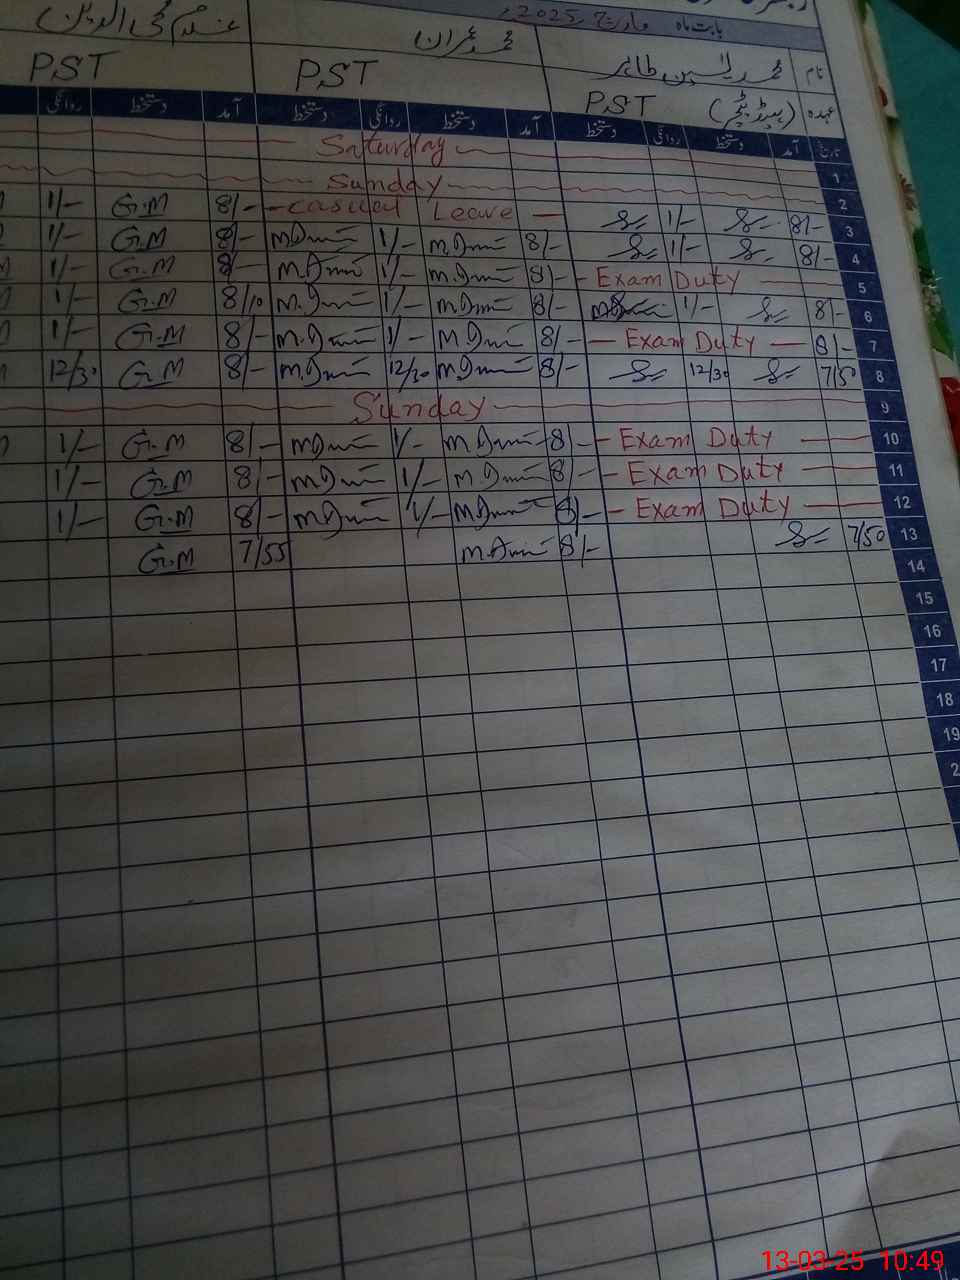 بابت ماہ مارچ 2025ء
نام محمد یٰسین طاہر محمد عمران غلام محی الدین
عہدہ (ہیڈ ٹیچر) PST PST PST
تاریخ آمد دستخط روانگی دستخط آمد دستخط روانگی دستخط آمد دستخط روانگی
1 Saturday
2 Sunday
3 8/- 1/- Casual Leave 8/- G.M 1/-
4 8/- 1/- 8/- M.Imran 1/- M.Imran 8/- G.M 1/-
5 Exam Duty 8/- M.Imran 1/- M.Imran 8/- G.M 1/-
6 8/- 1/- 8/- M.Imran 1/- M.Imran 8/10 G.M 1/-
7 8/- Exam Duty 8/- M.Imran 1/- M.Imran 8/- G.M 1/-
8 7/50 12/30 8/- M.Imran 12/30 M.Imran 8/- G.M 12/30
9 Sunday
10 Exam Duty 8/- M.Imran 1/- M.Imran 8/- G.M 1/-
11 Exam Duty 8/- M.Imran 1/- M.Imran 8/- G.M 1/-
12 Exam Duty 8/- M.Imran 1/- M.Imran 8/- G.M 1/-
13 7/50 8/- M.Imran 7/55 G.M
14
15
16
17
18
19
2
13-03-25 10:49